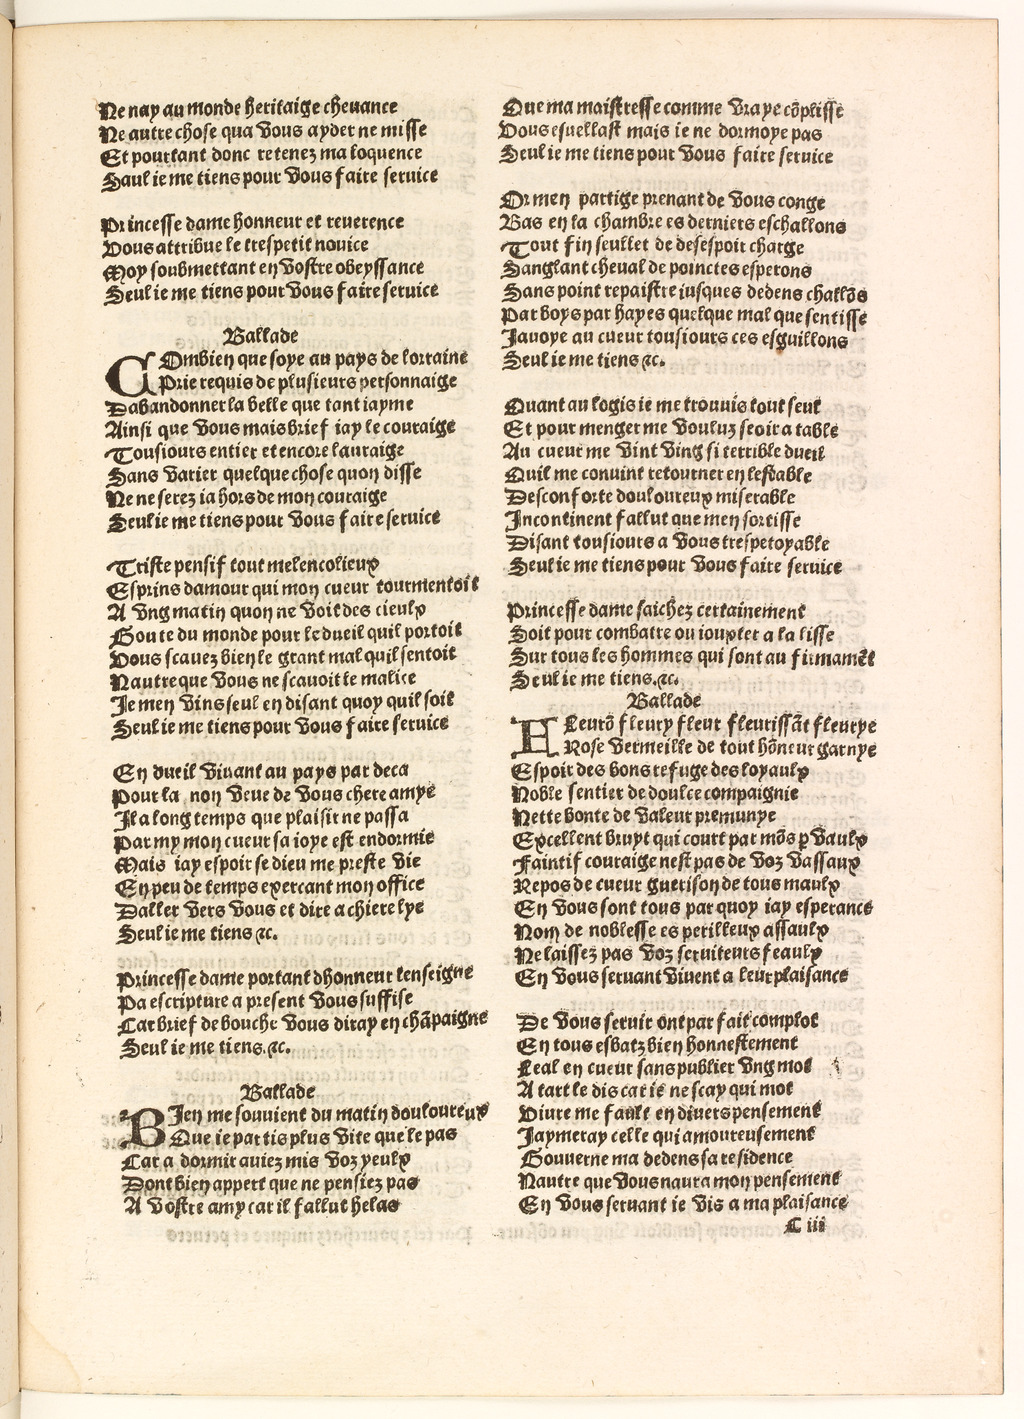 Ne nay au monde heritaige cheuance
Ne autre chose qua vous ayder ne misse
Et pourtant donc retenez ma loquence
Saul ie me tiens pour vous faire seruice
Princesse dame honneur et reuerence
Vous attribue le trespetit nouice
Moy soubmettant en vostre obeyssance
Seul ie me tiens pour vous faire seruice
Ballade
COmbien que soye au pays de lorraine
Prie requis de plusieurs personnaige
Dabandonner la belle que tant iayme
Ainsi que vous mais brief iay le couraige
Tousiours entier et encore lauraige
Sans varier quelque chose quon disse
Ne ne serez ia hors de mon couraige
Seul ie me tiens pour vous faire seruice
Triste pensif tout melencolieux
Esprins damour qui mon cueur tourmentoit
A vng matin quon ne voit des cieulx
Goute du monde pour le dueil quil portoit
Vous scauez bien le grant mal quil sentoit
Nautre que vous ne scauoit le malice
Je men vins seul en disant quoy quil soit
Seul ie me tiens pour vous faire seruice
En dueil viuant au pays par deca
Pour la non veue de vous chere amye
Il a long temps que plaisir ne passa
Par my mon cueur sa ioye est endormie
Mais iay espoir se dieu me preste vie
En peu de temps exercant mon office
Daller vers vous et dire a chiere lye
Seul ie me tiens ⁊c.
Princesse dame portant dhonneur lenseigne
Pa escripture a present vous suffise
Car brief de bouche vous diray en chãpaigne
Seul ie me tiens.⁊c.
Ballade
BIen me souuient du matin douloureux
Que ie partis plus vite que le pas
Car a dormir auiez mis voz yeulx
Dont bien appert que ne pensiez pas
A vostre amy car il fallut helas
Que ma maistresse comme vraye cõplisse
Vous esuellast mais ie ne dormoye pas
Seul ie me tiens pour vous faire seruice
Or men partige prenant de vous conge
Bas en la chambre es derniers eschallons
Tout fin seullet de desespoir charge
Sanglant cheual de poinctes esperons
Sans point repaistre iusques dedens challõs
Par boys par hayes quelque mal que sentisse
Jauoye au cueur tousiours ces esguillons
Seul ie me tiens ⁊c.
Quant au logis ie me trouuis tout seul
Et pour menger me vouluz seoir a table
Au cueur me vint vng si terrible dueil
Quil me conuint retourner en lestable
Desconforte douloureux miserable
Incontinent fallut que men sortisse
Disant tousiours a vous trespetoyable
Seul ie me tiens pour vous faire seruice
Princesse dame saichez certainement
Soit pour combatre ou iouxter a la lisse
Sur tous les hommes qui sont au firmamẽt
Seul ie me tiens.⁊c.
Ballade
FLeurõ fleury fleur fleurissãt fleurye
Rose vermeille de tout hõneur garnye
Espoir des bons refuge des loyaulx
Noble sentier de doulce compaignie
Nette bonte de valeur premunye
Excellent bruyt qui court par mõs ꝑ vaulx
Faintif couraige nest pas de voz vassaux
Repos de cueur guerison de tous maulx
En vous sont tous par quoy iay esperance
Nom de noblesse es perilleux assaulx
Ne laissez pas voz seruiteurs feaulx
En vous seruant viuent a leur plaisance
De vous seruir ont par fait complot
En tous esbatz bien honnestement
Leal en cueur sans publier vng mot
A tart le dis car ie ne scay qui mot
Viure me fault en diuers pensement
Jaymeray celle qui amoureusement
Gouuerne ma dedens sa residence
Nautre que vous naura mon pensement
En vous seruant ie vis a ma plaisance
C iii